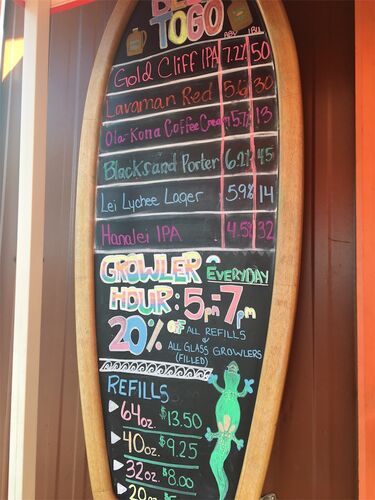 TOGO
ABV IBU
Gold Cliff IPA 7.2% 50
Lavaman Red 5.6% 30
Ola-Kona Coffee Cream 5.7% 13
Blacksand Porter 6.2% 45
Lei Lychee Lager 5.9% 14
Hanalei IPA 4.5% 32
GROWLER EVERYDAY
HOUR: 5pm-7pm
20% OFF ALL REFILLS
&
ALL GLASS GROWLERS
(FILLED)
REFILLS
64oz. $13.50
40oz. $9.25
32oz. $8.00
20oz